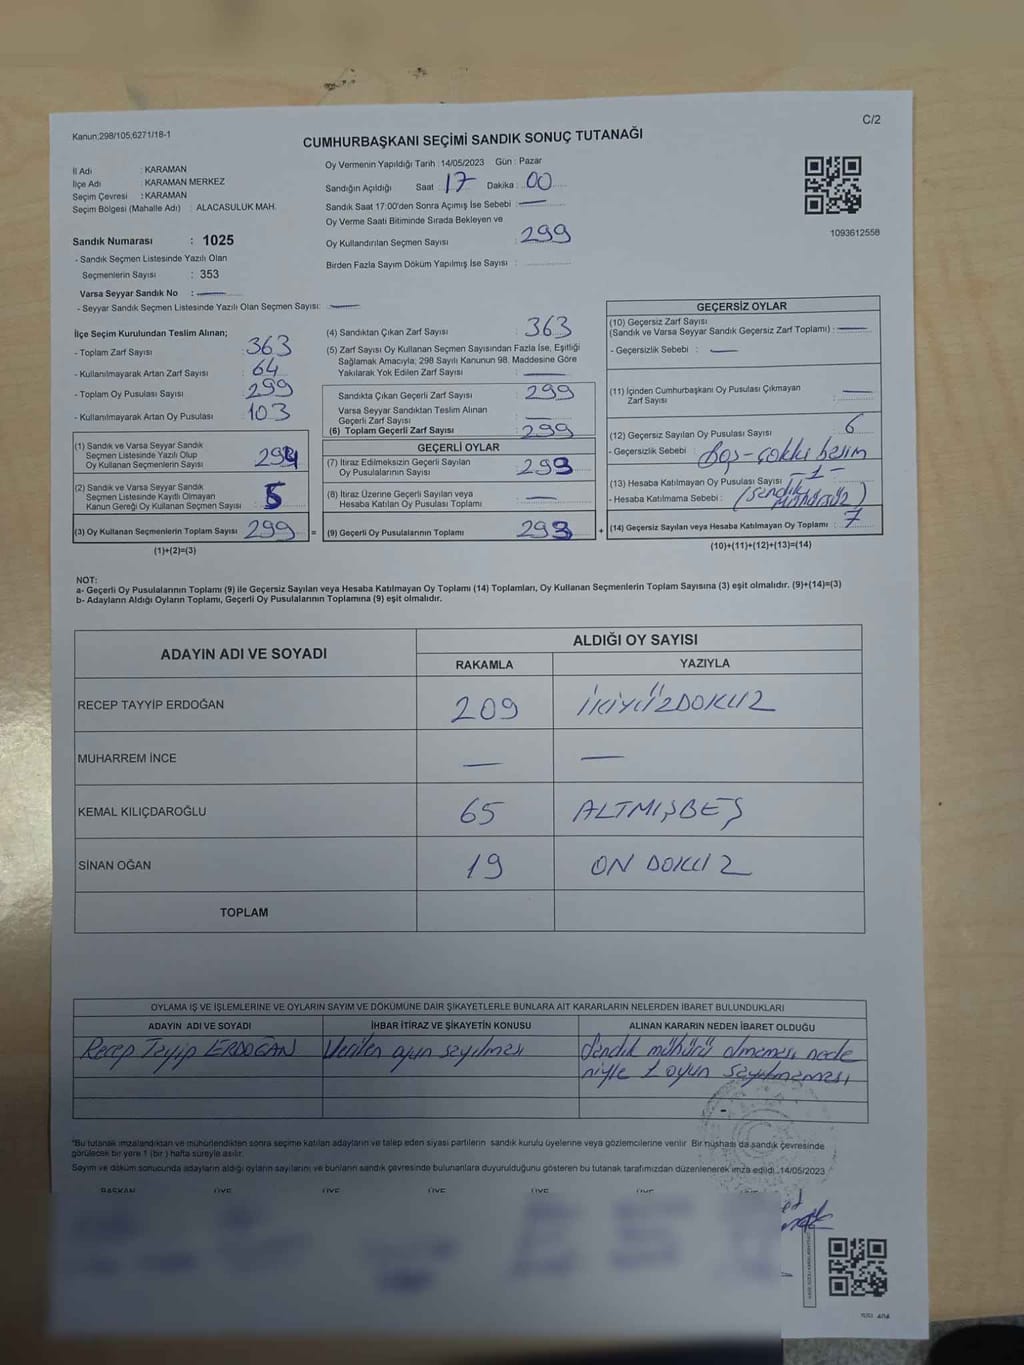 Kanun;298/105,6271/18-1
C/2
CUMHURBAŞKANI SEÇİMİ SANDIK SONUÇ TUTANAĞI
İl Adı : KARAMAN
İlçe Adı : KARAMAN MERKEZ
Seçim Çevresi : KARAMAN
Seçim Bölgesi (Mahalle Adı) : ALACASULUK MAH.
Sandık Numarası : 1025
- Sandık Seçmen Listesinde Yazılı Olan
Seçmenlerin Sayısı : 353
Varsa Seyyar Sandık No : —
- Seyyar Sandık Seçmen Listesinde Yazılı Olan Seçmen Sayısı: —
Oy Vermenin Yapıldığı Tarih : 14/05/2023 Gün : Pazar
Sandığın Açıldığı Saat : 17 Dakika : 00
Sandık Saat 17:00'den Sonra Açımış İse Sebebi : —
Oy Verme Saati Bitiminde Sırada Bekleyen ve
Oy Kullandırılan Seçmen Sayısı : 299
Birden Fazla Sayım Döküm Yapılmış İse Sayısı :
1093612558
İlçe Seçim Kurulundan Teslim Alınan;
- Toplam Zarf Sayısı : 363
- Kullanılmayarak Artan Zarf Sayısı : 64
- Toplam Oy Pusulası Sayısı : 299
- Kullanılmayarak Artan Oy Pusulası : 103
(1) Sandık ve Varsa Seyyar Sandık
Seçmen Listesinde Yazılı Olup
Oy Kullanan Seçmenlerin Sayısı : 294
(2) Sandık ve Varsa Seyyar Sandık
Seçmen Listesinde Kayıtlı Olmayan
Kanun Gereği Oy Kullanan Seçmen Sayısı : 5
(3) Oy Kullanan Seçmenlerin Toplam Sayısı : 299 =
(1)+(2)=(3)
(4) Sandıktan Çıkan Zarf Sayısı : 363
(5) Zarf Sayısı Oy Kullanan Seçmen Sayısından Fazla İse, Eşitliği
Sağlamak Amacıyla; 298 Sayılı Kanunun 98. Maddesine Göre
Yakılarak Yok Edilen Zarf Sayısı : —
Sandıkta Çıkan Geçerli Zarf Sayısı : 299
Varsa Seyyar Sandıktan Teslim Alınan
Geçerli Zarf Sayısı : —
(6) Toplam Geçerli Zarf Sayısı : 299
GEÇERLİ OYLAR
(7) İtiraz Edilmeksizin Geçerli Sayılan
Oy Pusulalarının Sayısı : 293
(8) İtiraz Üzerine Geçerli Sayılan veya
Hesaba Katılan Oy Pusulası Toplamı : —
(9) Geçerli Oy Pusulalarının Toplamı : 293 +
GEÇERSİZ OYLAR
(10) Geçersiz Zarf Sayısı
(Sandık ve Varsa Seyyar Sandık Geçersiz Zarf Toplamı) : —
- Geçersizlik Sebebi : —
(11) İçinden Cumhurbaşkanı Oy Pusulası Çıkmayan
Zarf Sayısı : —
(12) Geçersiz Sayılan Oy Pusulası Sayısı : 6
- Geçersizlik Sebebi : Boş-çoklu basım
(13) Hesaba Katılmayan Oy Pusulası Sayısı : -1-
- Hesaba Katılmama Sebebi : (Sandık MÜHÜRSÜZ)
(14) Geçersiz Sayılan veya Hesaba Katılmayan Oy Toplamı : 7
(10)+(11)+(12)+(13)=(14)
NOT:
a- Geçerli Oy Pusulalarının Toplamı (9) ile Geçersiz Sayılan veya Hesaba Katılmayan Oy Toplamı (14) Toplamları, Oy Kullanan Seçmenlerin Toplam Sayısına (3) eşit olmalıdır. (9)+(14)=(3)
b- Adayların Aldığı Oyların Toplamı, Geçerli Oy Pusulalarının Toplamına (9) eşit olmalıdır.
ADAYIN ADI VE SOYADI ALDIĞI OY SAYISI
RAKAMLA YAZIYLA
RECEP TAYYİP ERDOĞAN 209 İKİYÜZDOKUZ
MUHARREM İNCE — —
KEMAL KILIÇDAROĞLU 65 ALTMIŞBEŞ
SİNAN OĞAN 19 ON DOKUZ
TOPLAM
OYLAMA İŞ VE İŞLEMLERİNE VE OYLARIN SAYIM VE DÖKÜMÜNE DAİR ŞİKAYETLERLE BUNLARA AİT KARARLARIN NELERDEN İBARET BULUNDUKLARI
ADAYIN ADI VE SOYADI İHBAR İTİRAZ VE ŞİKAYETİN KONUSU ALINAN KARARIN NEDEN İBARET OLDUĞU
Recep Tayyip ERDOĞAN Verilen oyun sayılması Sandık mühürü olmaması nede
niyle 1 oyun sayılmaması
"Bu tutanak imzalandıktan ve mühürlendikten sonra seçime katılan adayların ve talep eden siyasi partilerin sandık kurulu üyelerine veya gözlemcilerine verilir. Bir nüshası da sandık çevresinde
görülecek bir yere 1 (bir) hafta süreyle asılır.
Sayım ve döküm sonucunda adayların aldığı oyların sayılarını ve bunların sandık çevresinde bulunanlara duyurulduğunu gösteren bu tutanak tarafımızdan düzenlenerek imza edildi. 14/05/2023
BAŞKAN ÜYE ÜYE ÜYE ÜYE ÜYE ÜYE